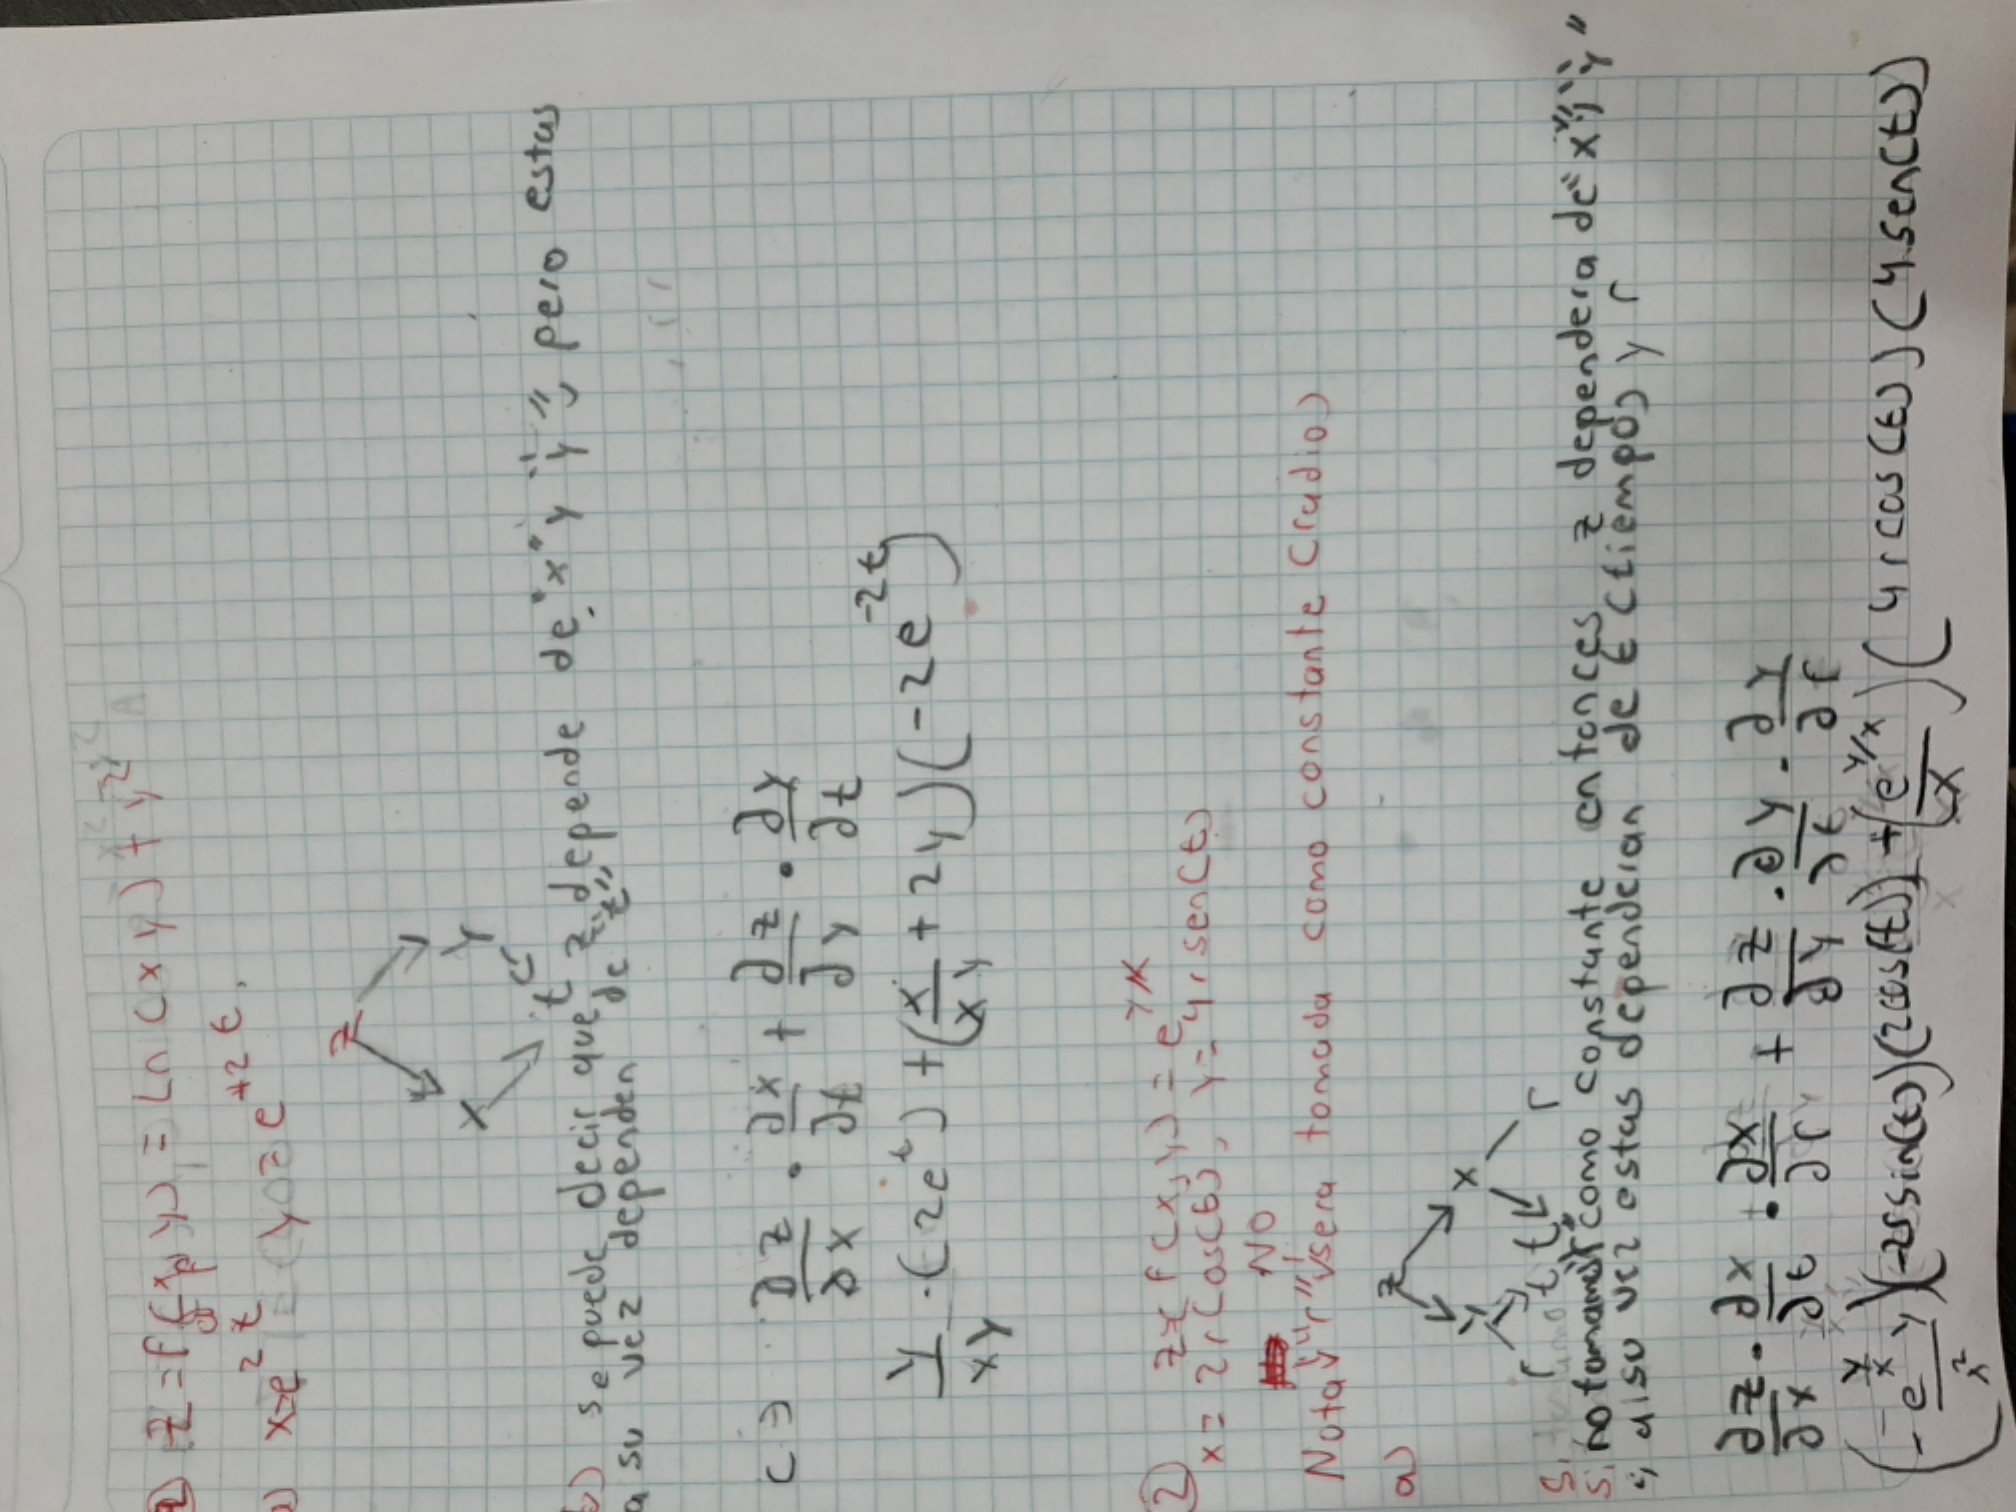 1) z = f(x, y) = Ln(xy) + y²
a) x=e^2t y = e^-2t.
z
x y
t
b) se puede decir que z depende de "x" y "y", pero estas
a su vez dependen de "t"
c) ∂z/∂x · ∂x/∂t + ∂z/∂y · ∂y/∂t
y/xy · (2e^t) + (x/xy + 2y)(-2e^-2t)
2) z = f(x,y) = e^y/x
x = 2rcos(t), y = 4rsen(t)
NO
Nota "r" sera tomada como constante (radio)
a) z
y x
r t t r
Si no tomamos "r" como constante entonces z dependera de "x" y "y"
y a su vez estas dependerian de t (tiempo) y r
∂z/∂x · ∂x/∂t · ∂x/∂r + ∂z/∂y · ∂y/∂t · ∂y/∂r
(-e^y/x y/x²)(-2rsin(t))(2cos(t)) + (e^y/x/x)(4rcos(t))(4sen(t))